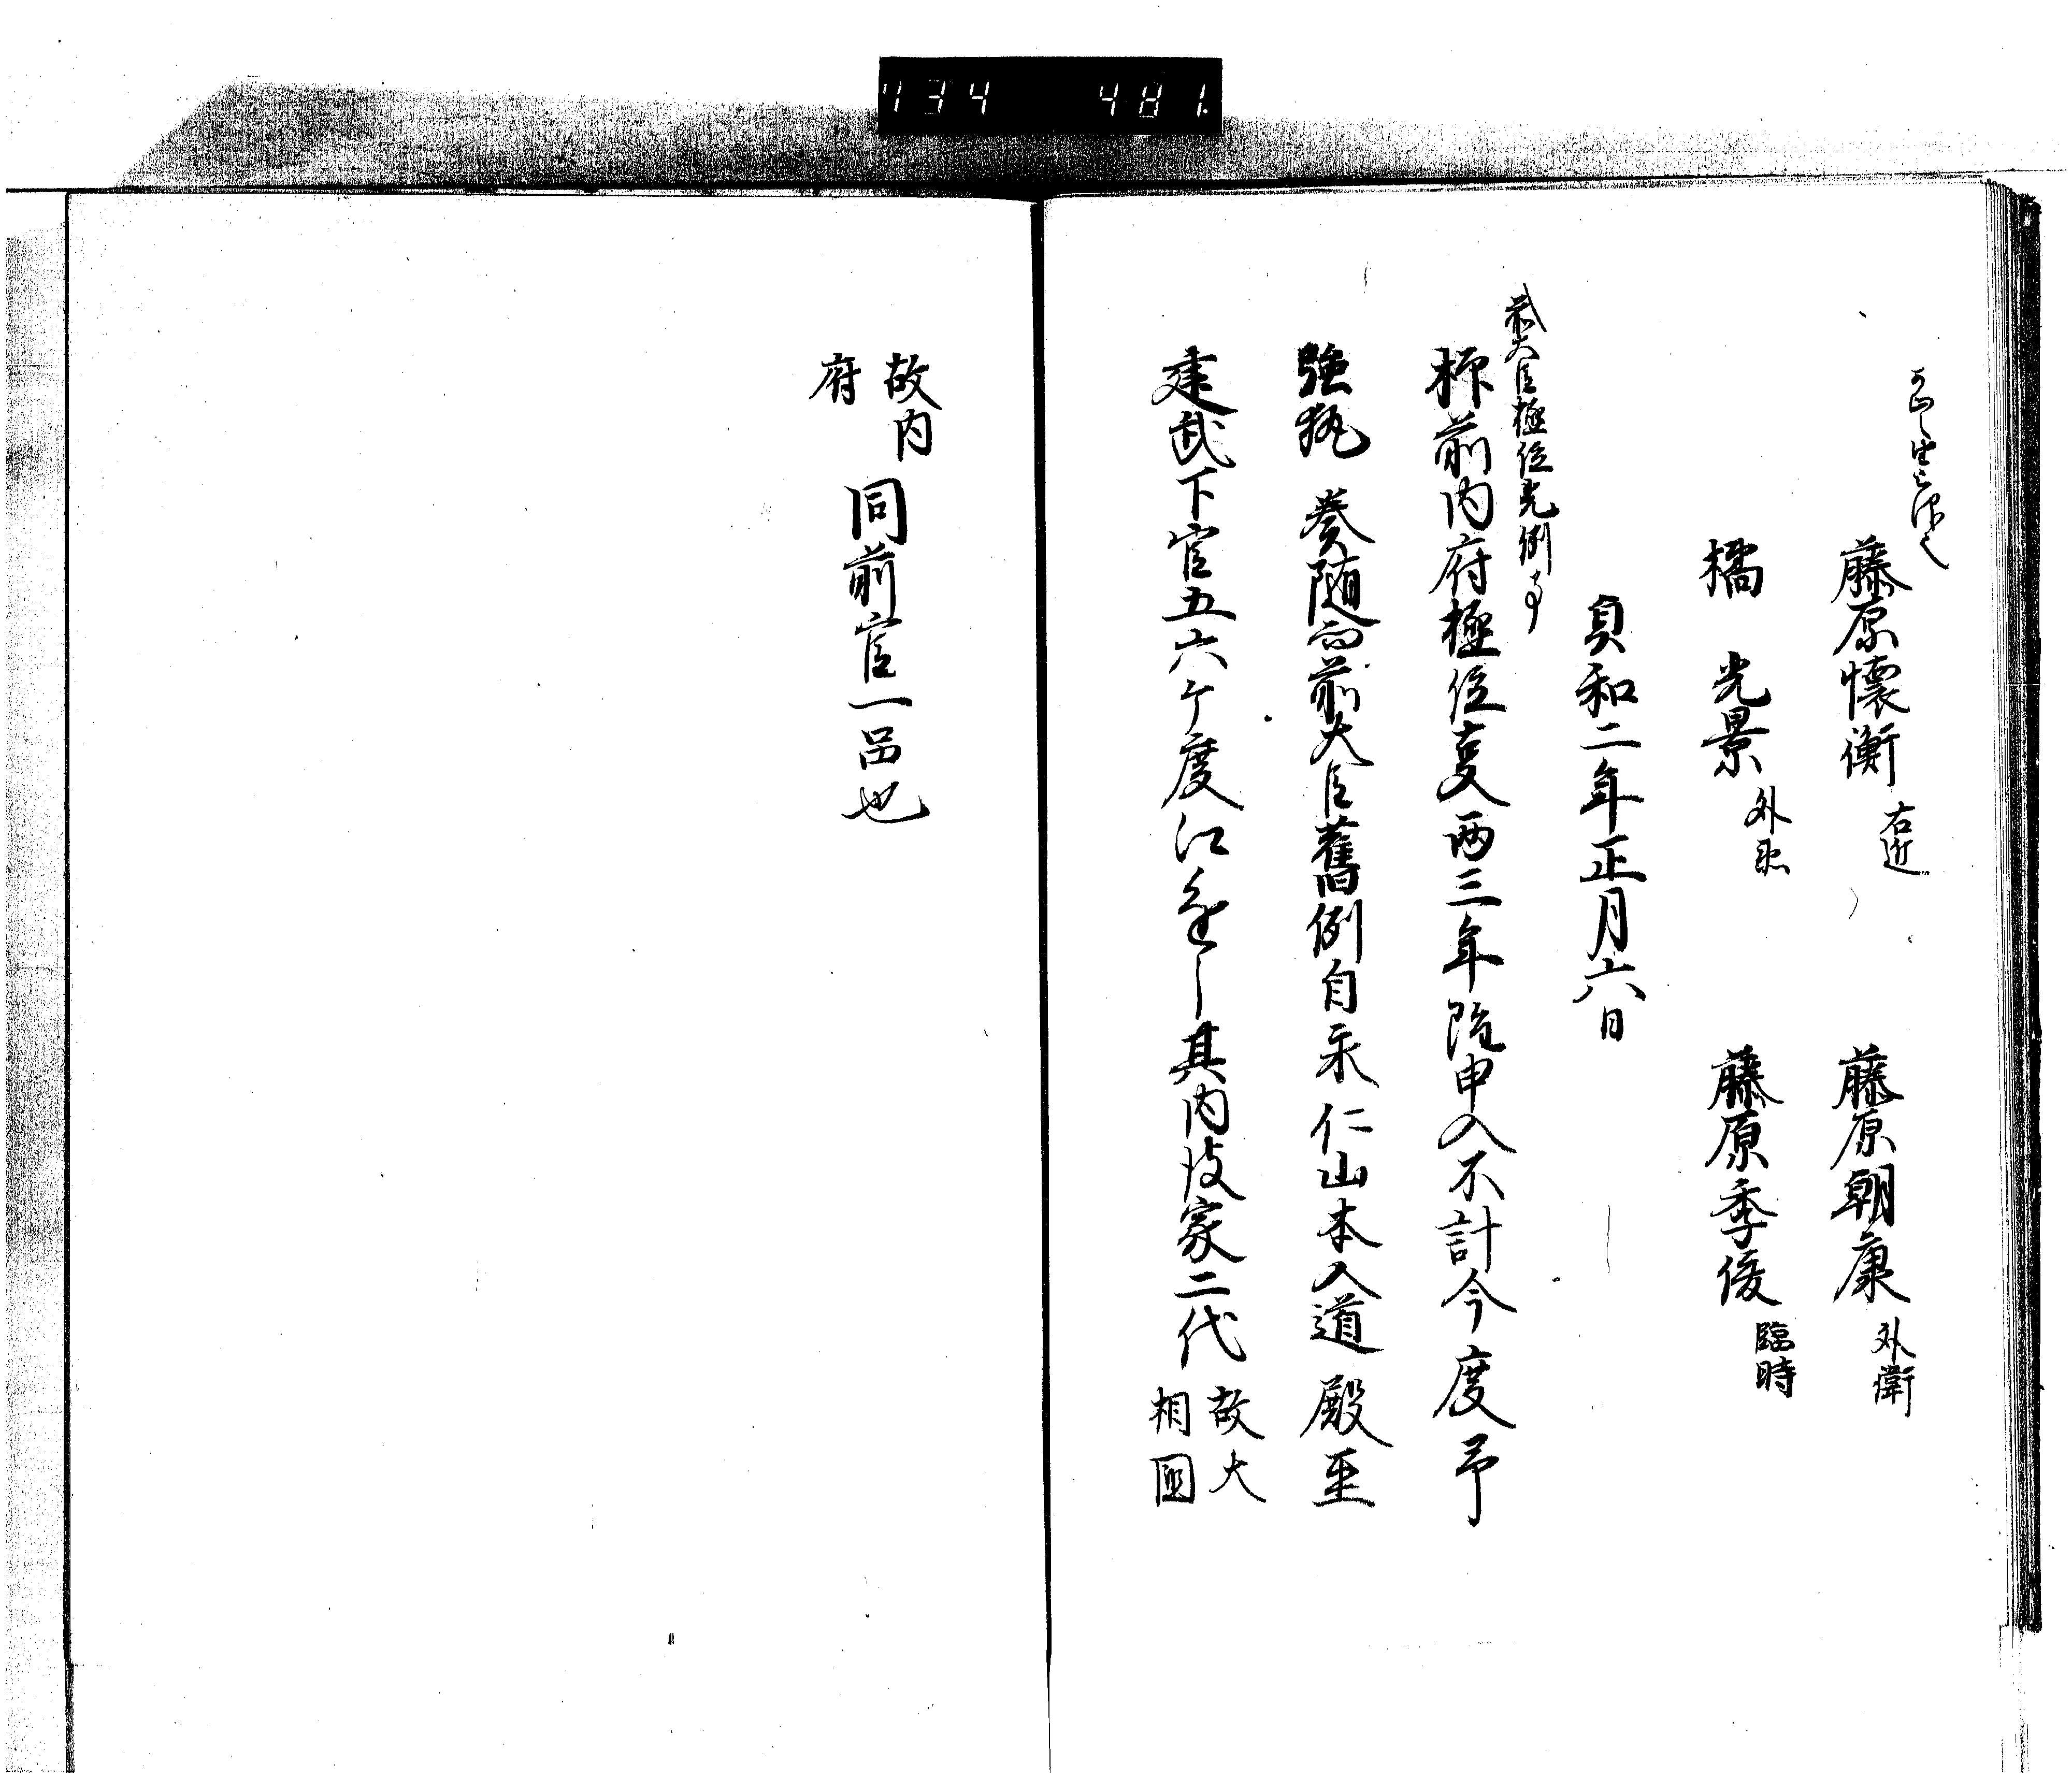 734 481
藤原懐衡 右近 藤原朝康 外衛
橘 光景 外記 藤原季俊 臨時
貞和二年正月六日
前大臣極位先例事
抑前内府極位事両三年随申入不計今度予
強執奏随而前大臣舊例自来仁山本入道殿至
建武下官五六ケ度 其内彼家二代 故大相國
故内府 同前官一召也